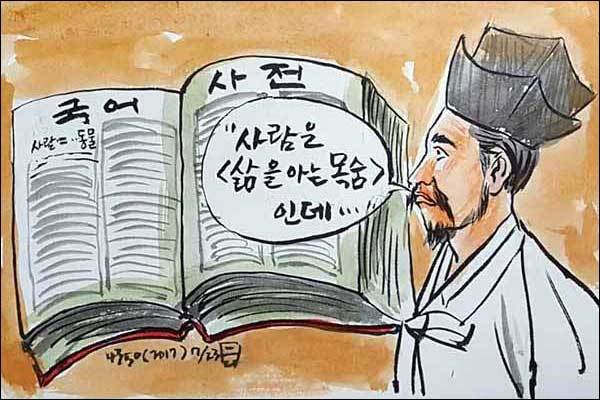 국어 사전
사람= ··동물
"사람은
<삶을 아는 목숨>
인데...
(2017)